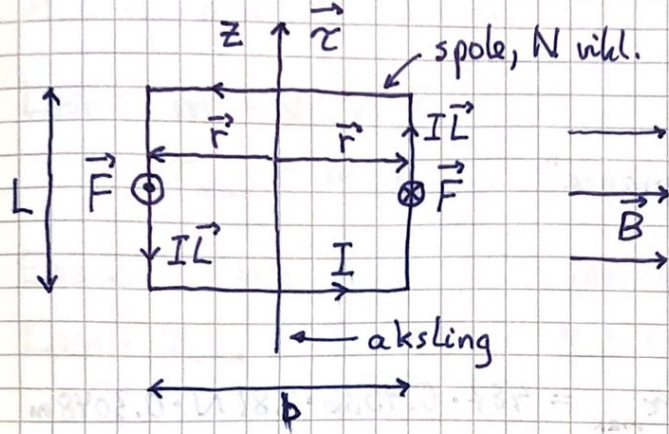 z
τ⃗
spole, N vikl.
r⃗
r⃗
IL⃗
L
F⃗
F⃗
B⃗
IL⃗
I
aksling
b